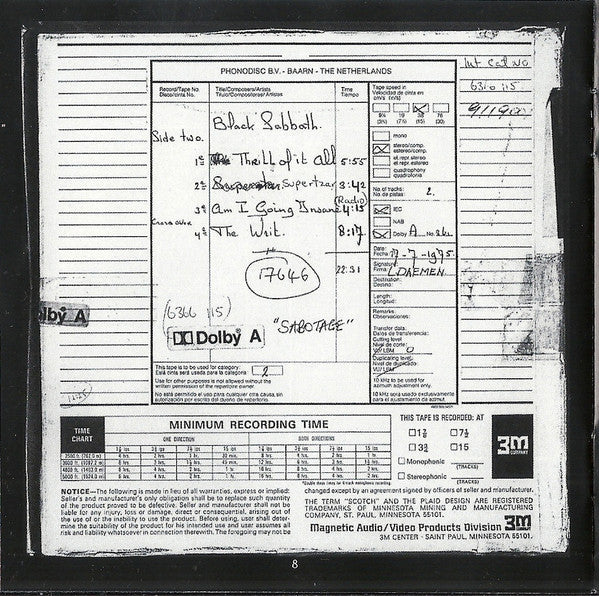 Int Cat No
PHONODISC B.V. - BAARN - THE NETHERLANDS
6366 115
Record/Tape No. Title/Composers/Artists Time
Disco/cinta No. Titulo/Compositores/Artistas Tiempo
Tape speed in
Velocidad de cinta en
cm/s (in/s)
9½ 19 38 76
(3¾) (7½) (15) (30)
Black Sabbath.
Side two.
mono
stereo/comp.
estereo/comp.
el. repr. stereo
el. repr. estereo
quadrophony
quadrofonia
1st Thrill of it all 5:55
2nd Supertzar 3:42
(Radio)
3rd Am I Going Insane 4:15
4th The Writ. 8:17
No. of tracks: 2.
No. de pistas:
IEC
NAB
Dolby A No.
17646
22:31
Date:
Fecha: 17-7-1975
Signature:
Firma: L DREMEN
Destination:
Destino:
Length:
Longitud:
(6366 115)
"SABOTAGE"
Dolby A
lby A
Remarks:
Observaciones:
Transfer data:
Datos de transferencia:
Cutting level
Nivel de corte
VU/LBM 0
Duplicating level
Nivel de duplicado
VU/LBM
10 kHz to be used for
azimuth adjustment only.
10 kHz será usado exclusivamente
para el ajustamiento de azimut.
This tape is to be used for category:
Esta cinta será usada para la categoria: 2
Use for other purposes is not allowed without the
written permission of the repertoire owner.
No está permitido el uso para cualquier otra causa, sin
autorización por escrito del dueño de repertorio.
TIME
CHART
MINIMUM RECORDING TIME
ONE DIRECTION BOTH DIRECTIONS
THIS TAPE IS RECORDED: AT
1⅞ 7½
3¾ 15
Monophonic (TRACKS)
Stereophonic (TRACKS)
3M
COMPANY
NOTICE—The following is made in lieu of all warranties, express or implied:
Seller's and manufacturer's only obligation shall be to replace such quantity
of the product proved to be defective. Seller and manufacturer shall not be
liable for any injury, loss or damage, direct or consequential, arising out of
the use of or the inability to use the product. Before using, user shall deter-
mine the suitability of the product for his intended use and user assumes all
risk and liability whatsoever in connection therewith. The foregoing may not be
changed except by an agreement signed by officers of seller and manufacturer.
THE TERM "SCOTCH" AND THE PLAID DESIGN ARE REGISTERED
TRADEMARKS OF MINNESOTA MINING AND MANUFACTURING
COMPANY, ST. PAUL, MINNESOTA 55101.
Magnetic Audio/Video Products Division 3M
3M CENTER · SAINT PAUL, MINNESOTA 55101.
8